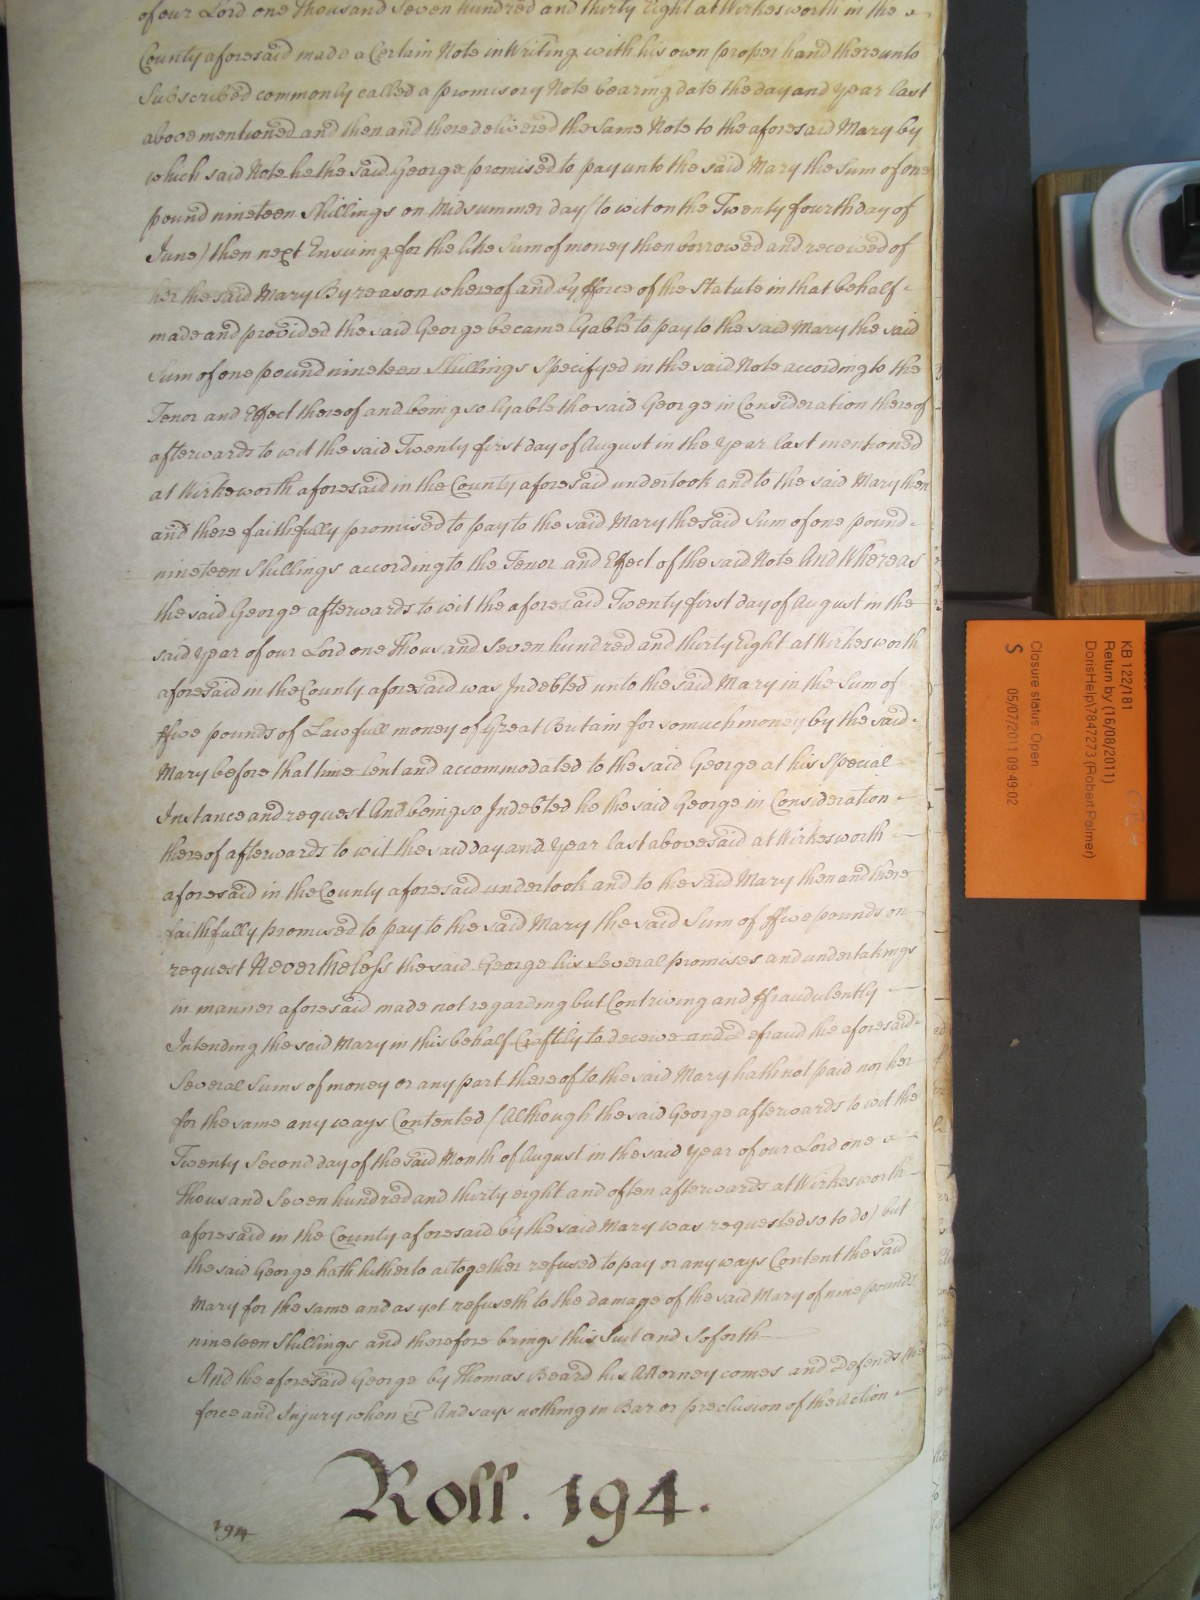 of our Lord one thousand Seven hundred and thirty Eight at Wirkesworth in the
County aforesaid made a Certain Note in Writing with his own proper hand thereunto
Subscribed commonly called a promisory Note bearing date the day and year last
above mentioned and then and there delivered the same Note to the aforesaid Mary by
which said Note he the said George promised to pay unto the said Mary the Sum of one
pound nineteen Shillings on Midsummer day (to wit on the Twenty fourth day of
June) then next Ensuing for the like Sum of money then borrowed and received of
her the said Mary By reason whereof and by fforce of the Statute in that behalf
made and provided the said George became lyable to pay to the said Mary the said
Sum of one pound nineteen Shillings Specifyed in the said Note according to the
Tenor and Effect thereof and being so lyable the said George in Consideration thereof
afterwards to wit the said Twenty first day of August in the year last mentioned
at Wirkesworth aforesaid in the County aforesaid undertook and to the said Mary then
and there faithfully promised to pay to the said Mary the said Sum of one pound
nineteen Shillings according to the Tenor and Effect of the said Note And Whereas
the said George afterwards to wit the aforesaid Twenty first day of August in the
said year of our Lord one Thousand Seven hundred and thirty Eight at Wirkesworth
aforesaid in the County aforesaid was Indebted unto the said Mary in the Sum of
ffive pounds of Lawfull money of Great Britain for so much money by the said
Mary before that time lent and accommodated to the said George at his Special
Instance and request And being so Indebted he the said George in Consideration
thereof afterwards to wit the said day and year last abovesaid at Wirkesworth
aforesaid in the County aforesaid undertook and to the said Mary then and there
faithfully promised to pay to the said Mary the said Sum of ffive pounds on
request Nevertheless the said George his Several promises and undertakings
in manner aforesaid made not regarding but Contriving and ffraudulently
Intending the said Mary in this behalf Craftily to deceive and defraud the aforesaid
Several Sums of money or any part thereof to the said Mary hath not paid nor her
for the same any ways Contented (Although the said George afterwards to wit the
Twenty Second day of the said Month of August in the said year of our Lord one
Thousand Seven hundred and thirty eight and often afterwards at Wirkesworth
aforesaid in the County aforesaid by the said Mary was requested so to do) but
the said George hath hitherto altogether refused to pay or any ways Content the said
Mary for the same and as yet refuseth to the damage of the said Mary of nine pounds
nineteen Shillings and therefore brings this Suit and So forth
And the aforesaid George by Thomas Beard his Attorney comes and Defends the
force and Injury when &c And says nothing in Bar or preclusion of the Action
Roll. 194.
194
KB 122/181
Return by (16/08/2011)
DorisHelp\7847273 (Robert Palmer)
Closure status: Open
S 05/07/2011 09:49:02